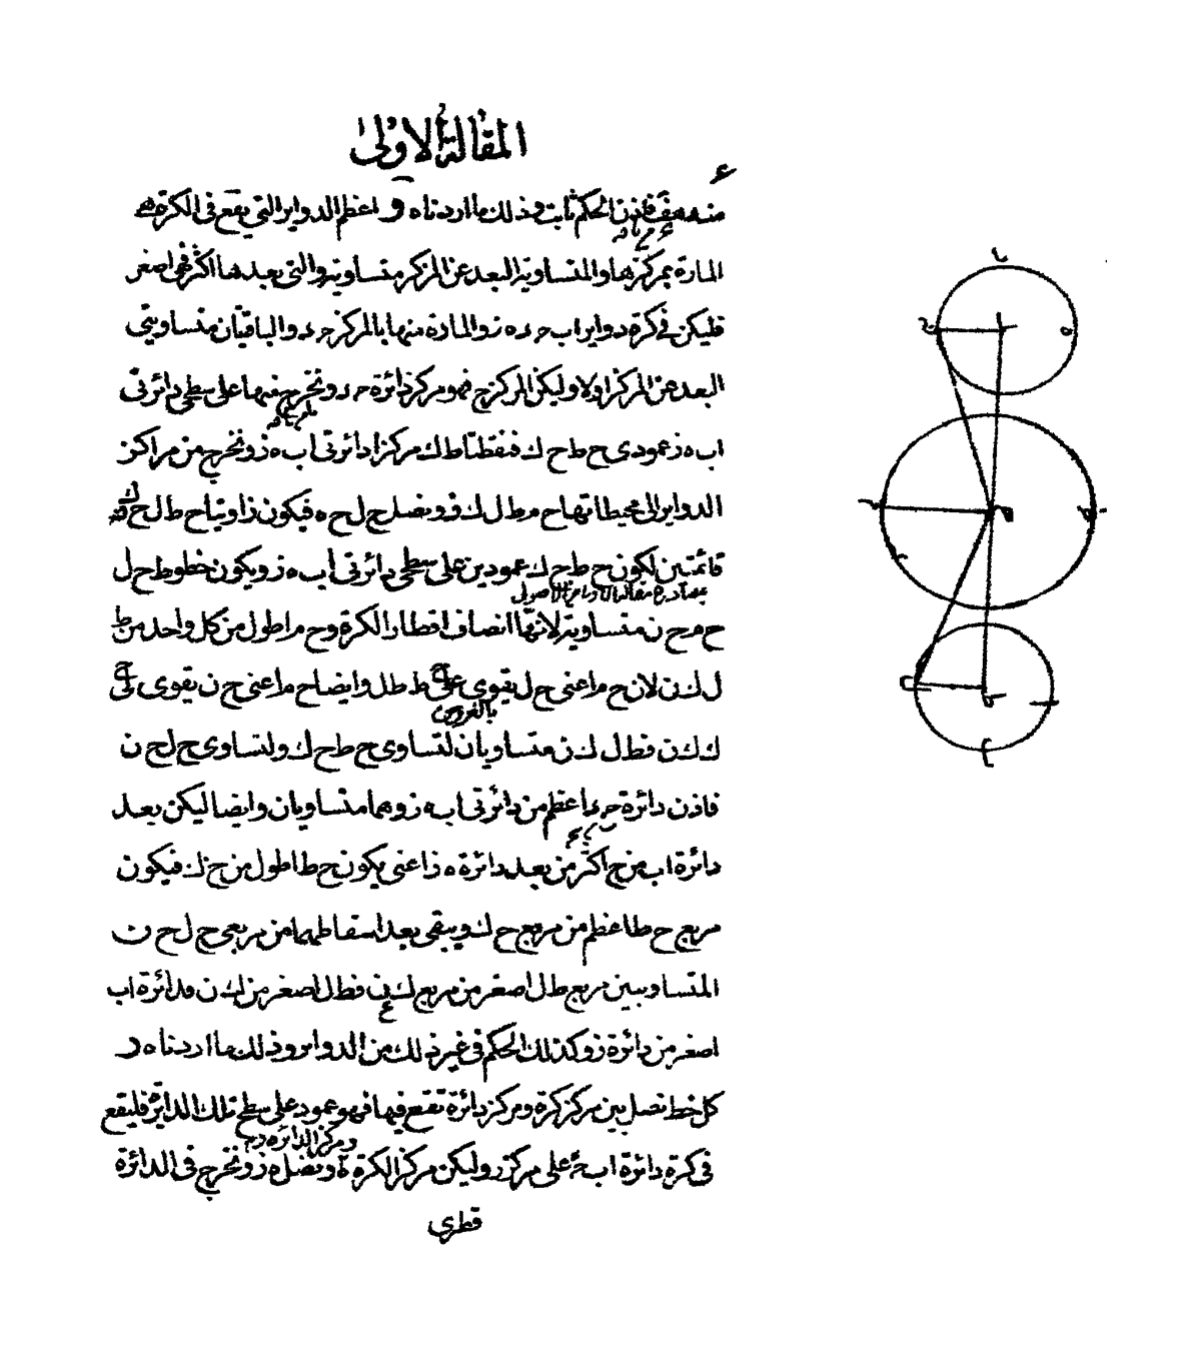 المقالة الاولى
ع
منه هف فاذن الحكم ثابت وذلك ما اردناه و اعظم الدواير التي يقع فى الكرة هى
المارة بمركزها والمتساوية البعد عن المركز متساوية والتى بعدها اكثر فهى اصغر
فليكن فى كرة دواير اب حء ه ز والمارة منها بالمركز حء والباقيتان متساويتى
البعد عن المركز اولا وليكن المركز ح فهو مركز دائرة حء ونخرج منها على سطحى دائرتى
اب ه ز عمودى ح ط ح ك فنقطتا ط ك مركزا دائرتى اب ه ز ونخرج من مراكز
الدواير الى محيطاتها ح م ط ل ك ن ونصل ح ل ح ن فيكون زاويتا ح ط ل ح ك ن
قائمتين لكون ح ط ح ك عمودين على سطحى دائرتى اب ه ز ويكون خطوط ح ل
بمصادرة مقالة من الاصول
ح م ح ن متساوية لانها انصاف اقطار الكرة وح م اطول من كل واحد من ط
ل ك ن لان ح م اعنى ح ل يقوى على ح ط ط ل وايضا ح م اعنى ح ن يقوى على ح
بالفرض
ك ك ن فط ل ك ن متساويان لتساوى ح ط ح ك ولتساوى ح ل ح ن
فاذن دائرة حء اعظم من دائرتى اب ه ز وهما متساويان وايضا ليكن بعد
دائرة اب من ح اكثر من بعد دائرة ه ز اعنى يكون ح ط اطول من ح ك فيكون
مربع ح ط اعظم من مربع ح ك ويبقى بعد اسقاطهما من مربعى ح ل ح ن
المتساويين مربع ط ل اصغر من مربع ك ن فط ل اصغر من ك ن فدائرة اب
اصغر من دائرة ه ز وكذلك الحكم فى غير ذلك من الدواير وذلك ما اردناه و
كل خط تصل بين مركز كرة ومركز دائرة تقع فيها فهو عمود على سطح تلك الدائرة فليقع
ومركز الدائرة
فى كرة دائرة اب حء على مركز ز وليكن مركز الكرة ه ونصل ه ز ونخرج فى الدائرة
قطرى